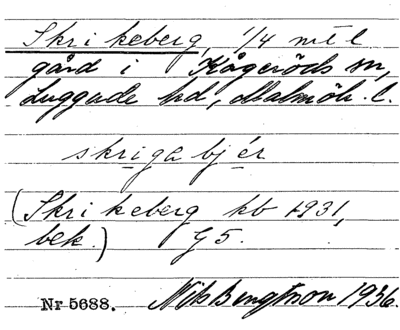 Skrikeberg, 1/4 mtl
gård i Kågeröds sn,
Luggude hd, Malmöh. l.
skrigabjér
(Skrikeberg kb 1931,
bek.) G5.
Nr 5688. Nils Bengtsson 1936.